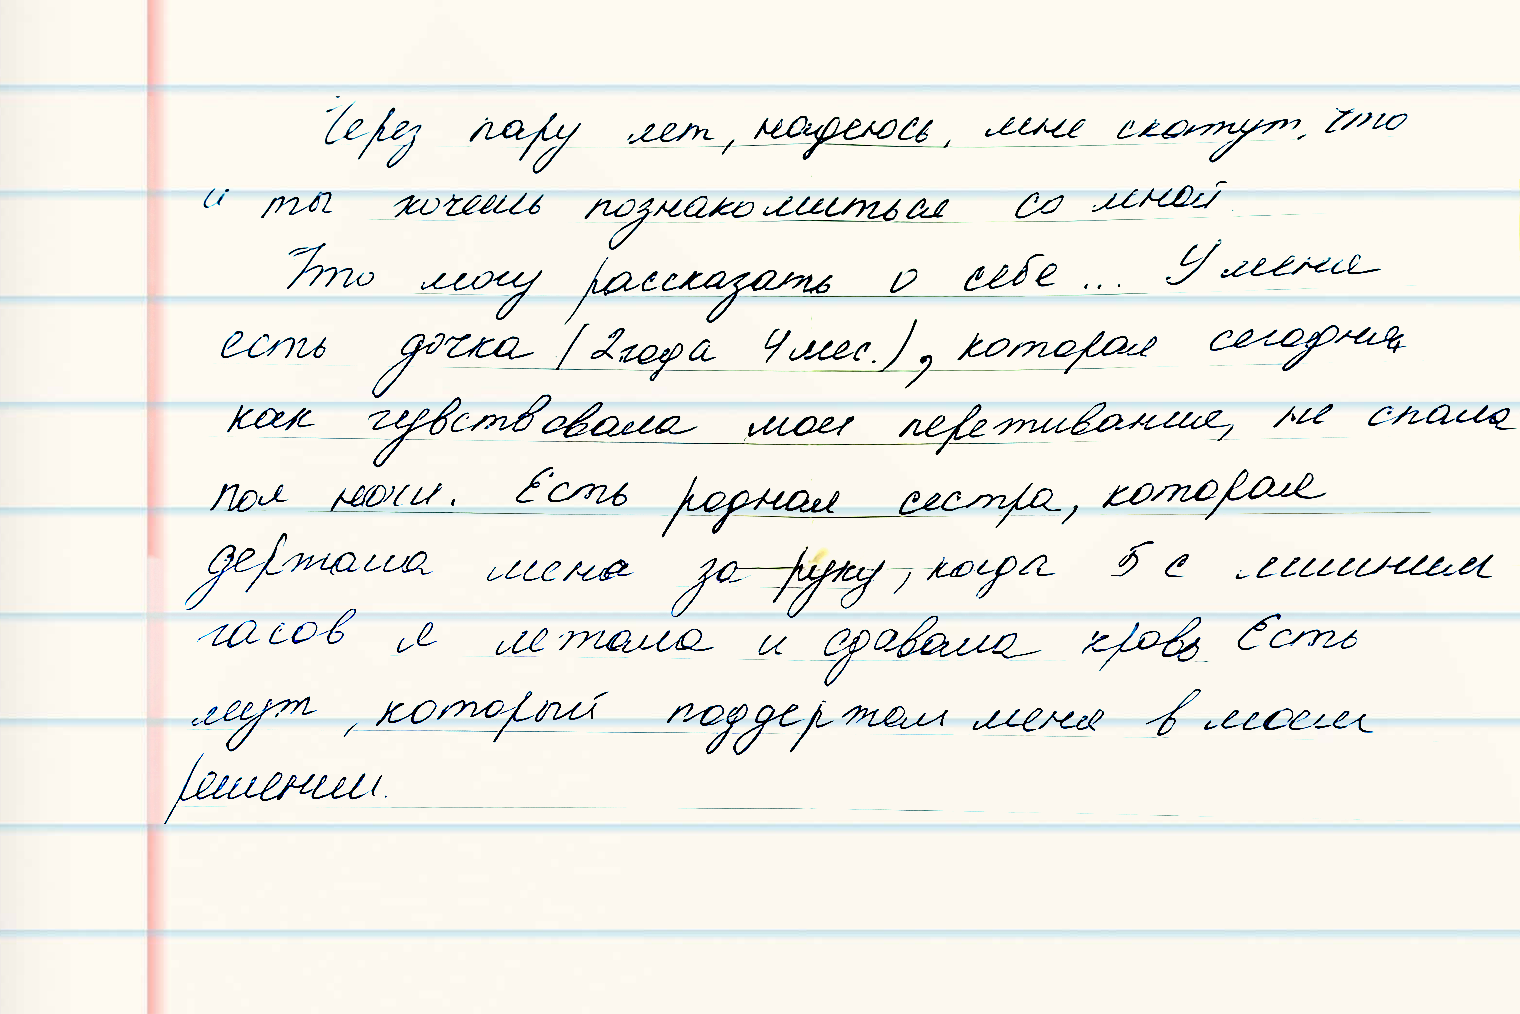 Через пару лет, надеюсь, мне скажут, что
и ты хочешь познакомиться со мной
Что могу рассказать о себе... У меня
есть дочка (2 года 4 мес.), которая сегодня,
как чувствовала мои переживания, не спала
пол ночи. Есть родная сестра, которая
держала меня за руку, когда 5 с лишним
часов я лежала и сдавала кровь Есть
муж, который поддержал меня в моем
решении.